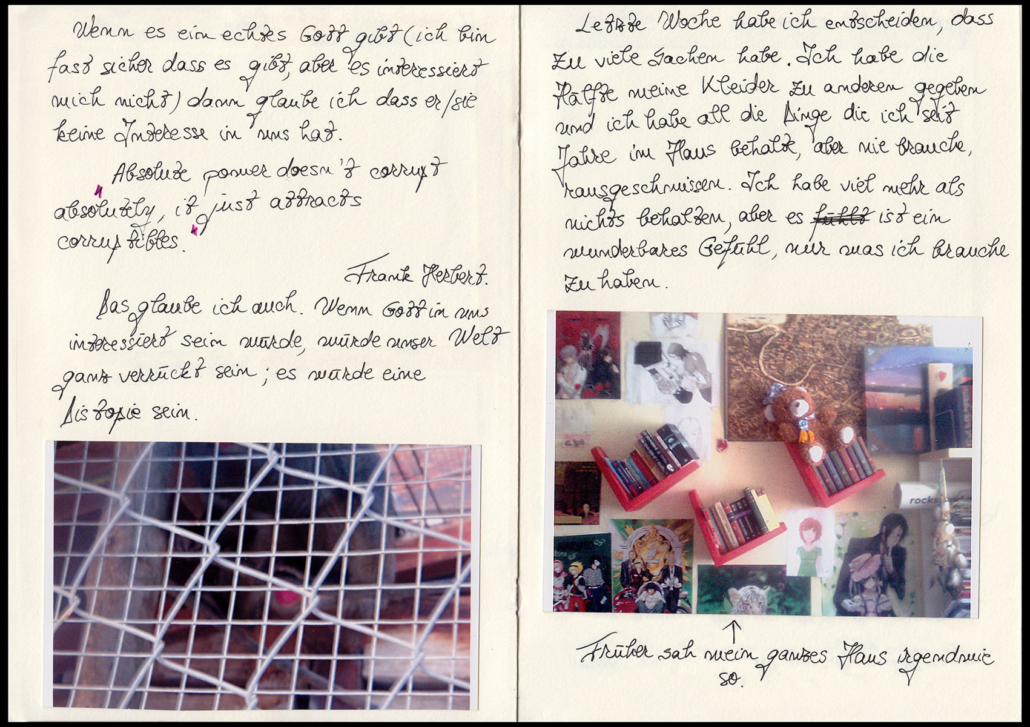 Wenn es ein echtes Gott gibt (ich bin
fast sicher dass es gibt, aber es interessiert
mich nicht) dann glaube ich dass er/sie
keine Interesse in uns hat.
"Absolute power doesn't corrupt
absolutely, it just attracts
corruptibles."
Frank Herbert.
Das glaube ich auch. Wenn Gott in uns
interessiert sein würde, würde unser Welt
ganz verrückt sein; es würde eine
Distopie sein.
Letzte Woche habe ich entscheiden, dass
zu viele Sachen habe. Ich habe die
Hälfte meine Kleider zu anderen gegeben
und ich habe all die Dinge die ich seit
Jahre im Haus behalte, aber nie brauche,
rausgeschmissen. Ich habe viel mehr als
nichts behalten, aber es fühlt ist ein
wunderbares Gefühl, nur was ich brauche
zu haben.
rocks
Früher sah mein ganzes Haus irgendwie
so.